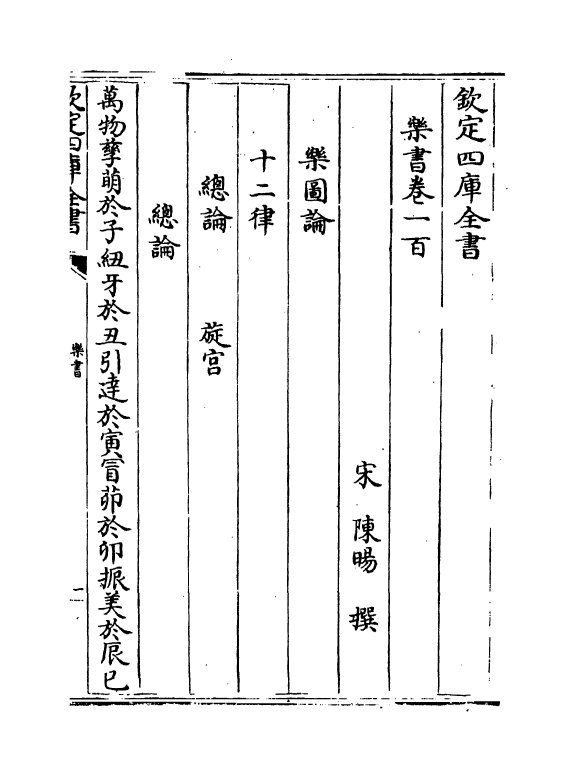 欽定四庫全書
樂書卷一百
宋　陳暘　撰
樂圖論
十二律
總論　旋宮
總論
萬物孳萌於子紐牙於丑引達於寅冒茆於卯振美於辰已
欽定四庫全書
樂書
一